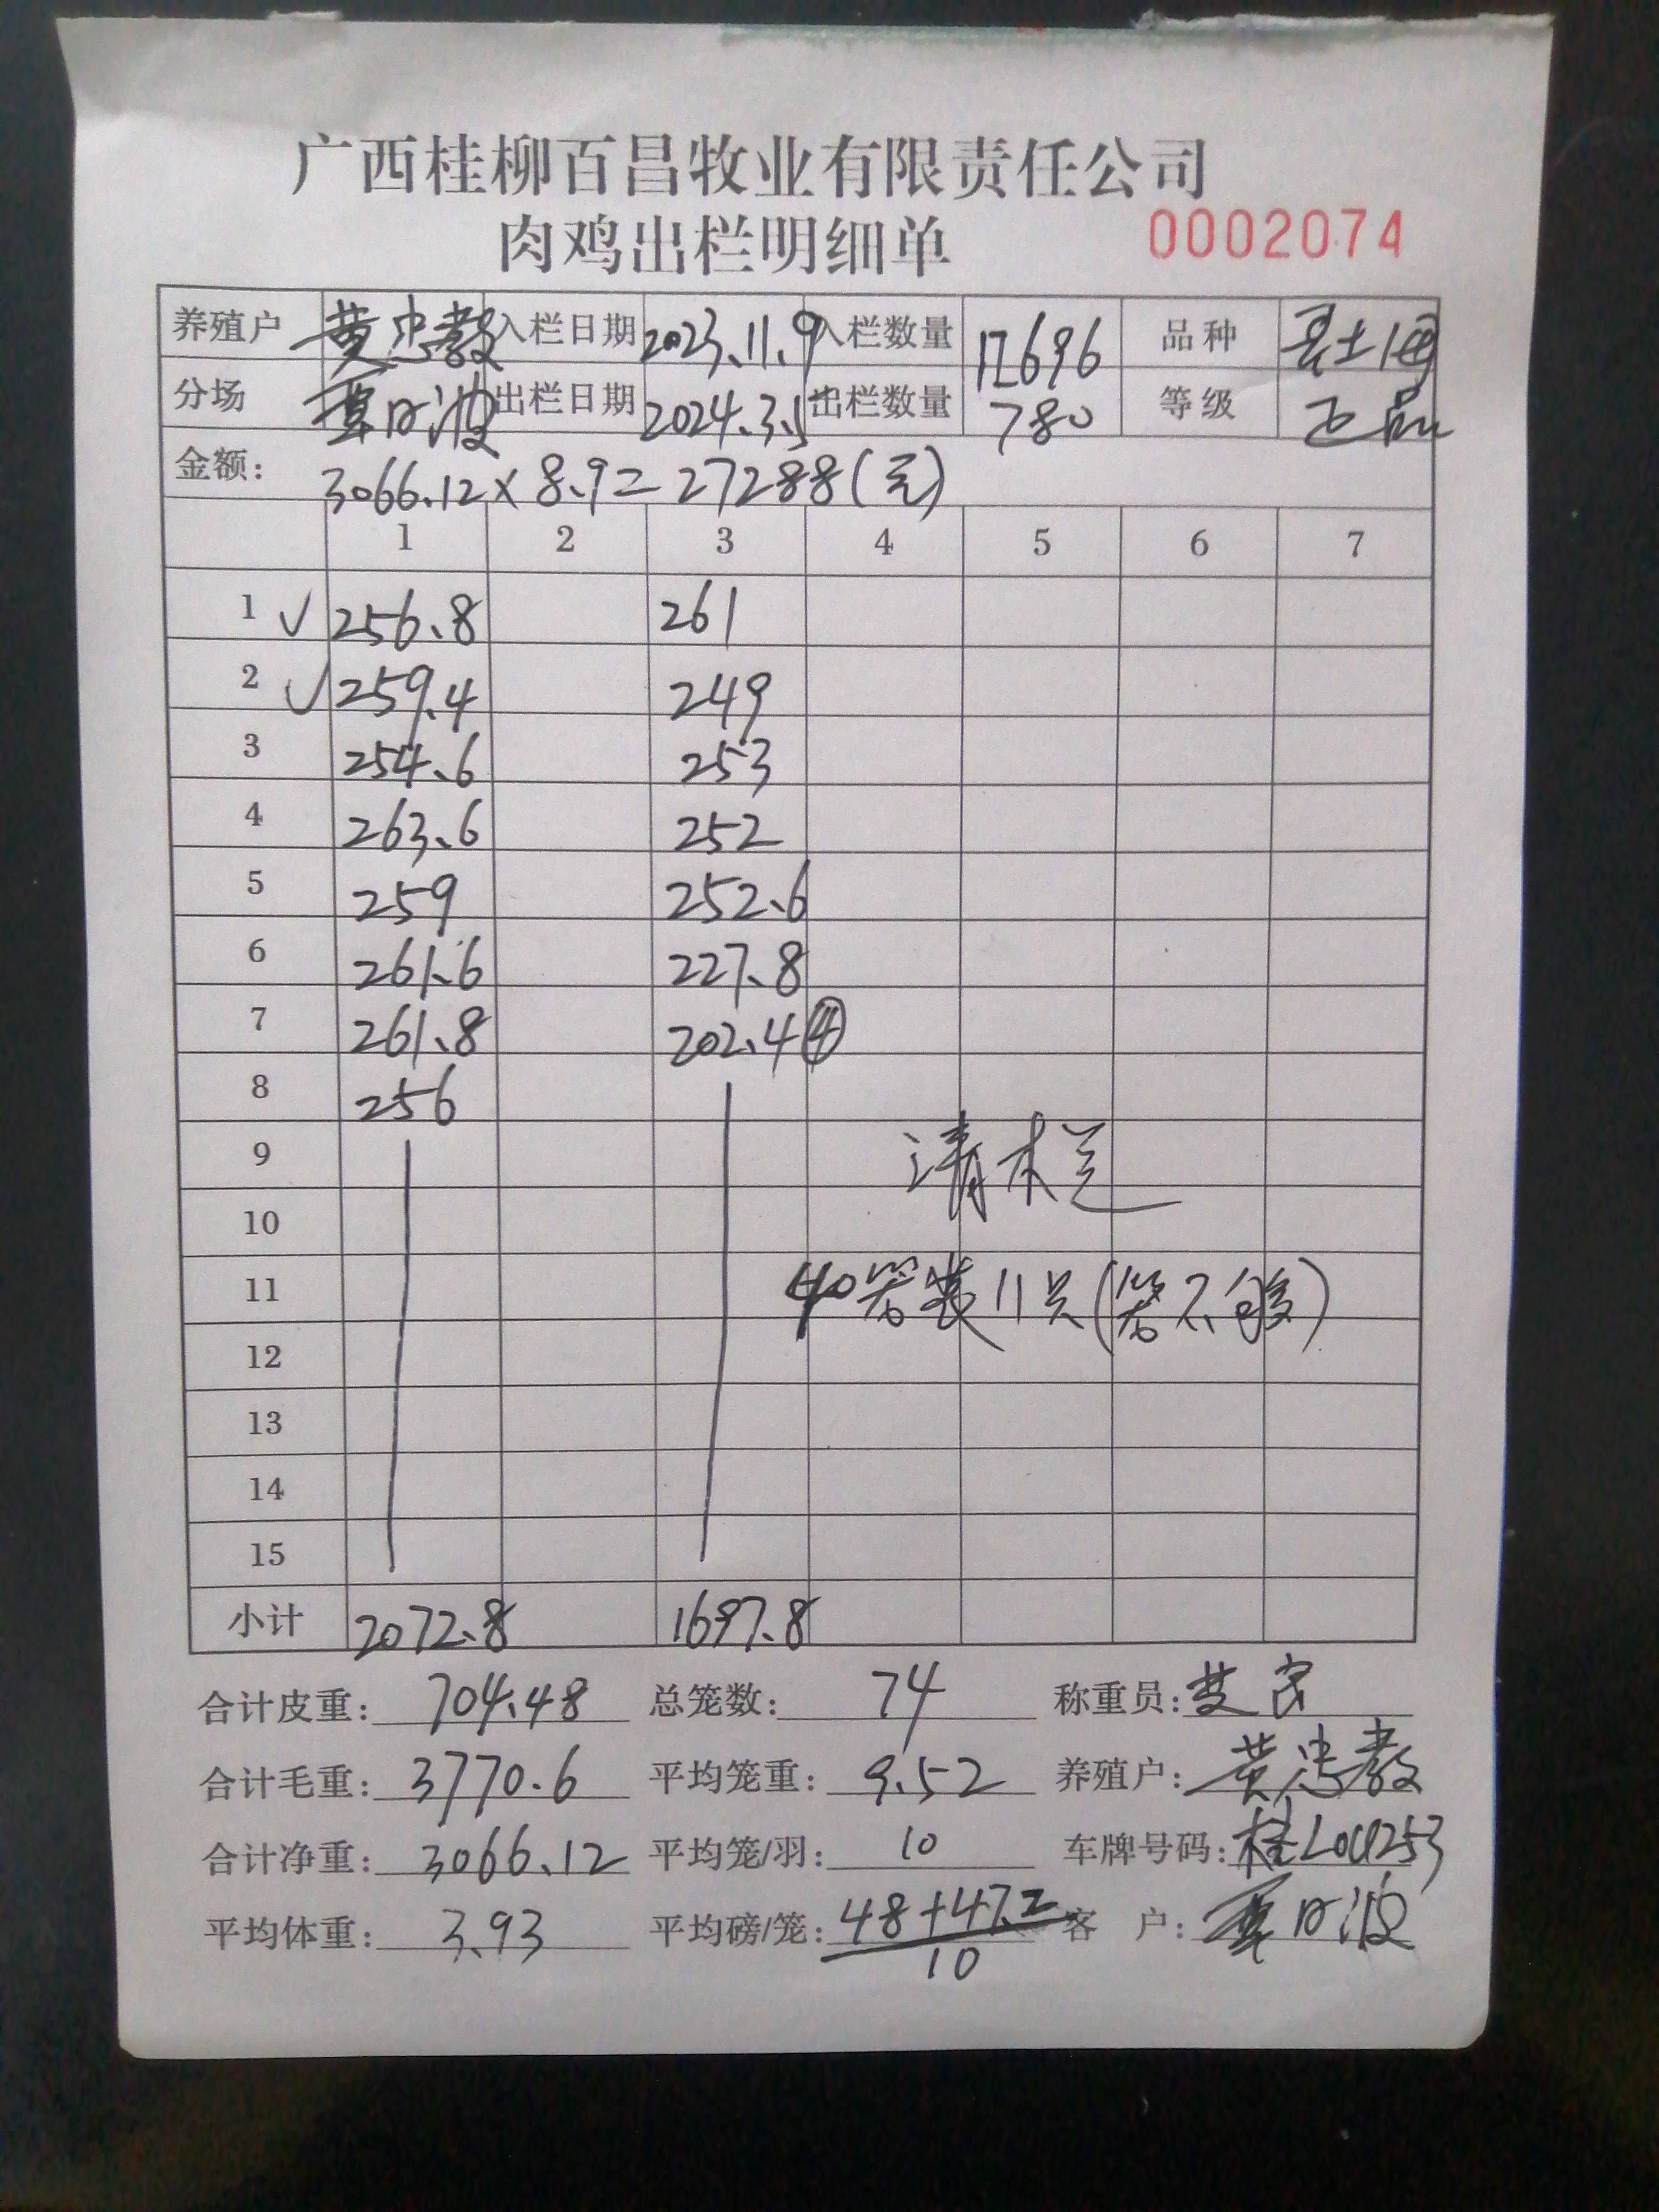 广西桂柳百昌牧业有限责任公司
肉鸡出栏明细单 0002074
养殖户 黄忠教 入栏日期 2023.11.9 入栏数量 12696 品种 土
分场 日波 出栏日期 2024.3.5 出栏数量 780 等级 正品
金额: 3066.12×8.9=27288(元)
1 2 3 4 5 6 7
1 ✓ 256.8 261
2 ✓ 259.4 249
3 254.6 253
4 263.6 252
5 259 252.6
6 261.6 227.8
7 261.8 202.4 ④
8 256
9 清末兰
10
11 40笼装11只(笼不够)
12
13
14
15
小计 2072.8 1697.8
合计皮重: 704.48 总笼数: 74 称重员:
合计毛重: 3770.6 平均笼重: 9.52 养殖户: 黄忠教
合计净重: 3066.12 平均笼/羽: 10 车牌号码: 桂L
平均体重: 3.93 平均磅/笼: 48+47.2 客 户: 日波
10